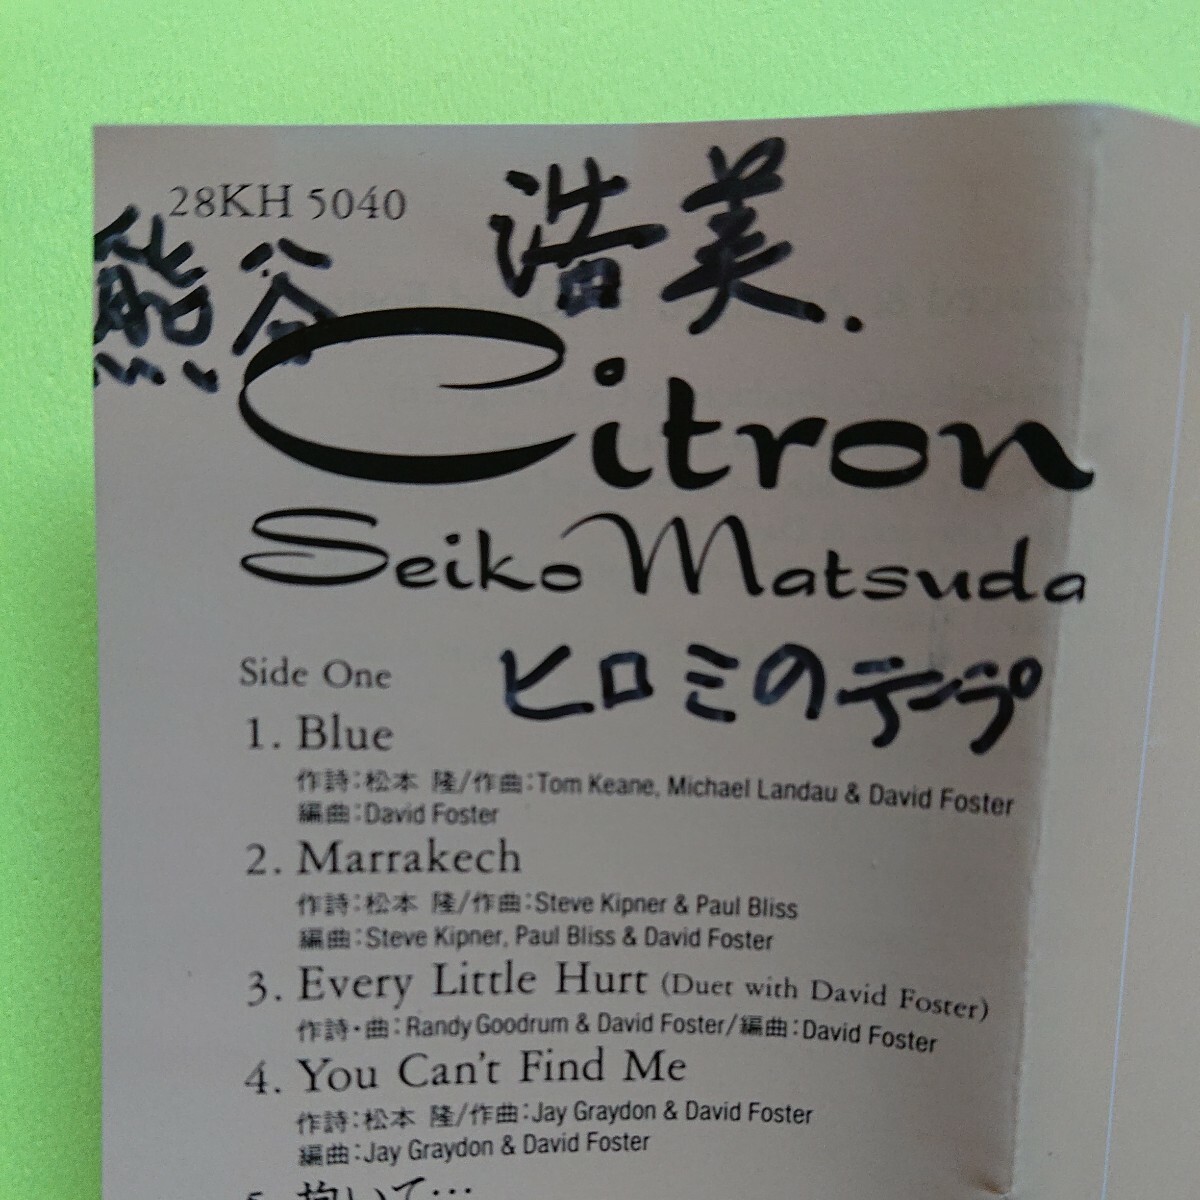 28KH 5040
熊谷 浩美.
Citron
Seiko Matsuda
ヒロミのテープ
Side One
1. Blue
作詩:松本 隆/作曲:Tom Keane, Michael Landau & David Foster
編曲:David Foster
2. Marrakech
作詩:松本 隆/作曲:Steve Kipner & Paul Bliss
編曲:Steve Kipner, Paul Bliss & David Foster
3. Every Little Hurt (Duet with David Foster)
作詩・曲:Randy Goodrum & David Foster/編曲:David Foster
4. You Can't Find Me
作詩:松本 隆/作曲:Jay Graydon & David Foster
編曲:Jay Graydon & David Foster
5. 抱いて…